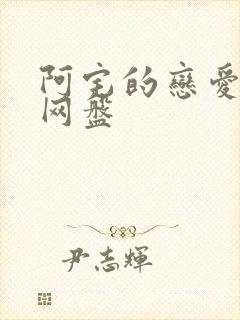 阿宅的戀愛
网盤
尹志輝